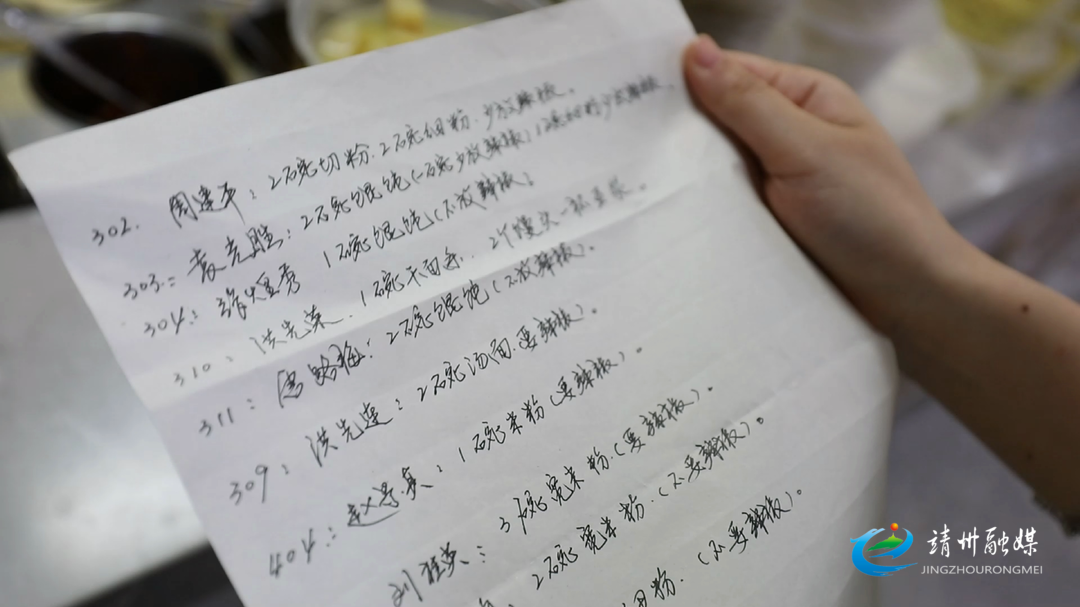 302. 周建平：2碗切粉.2碗细粉.少放辣椒。
303：袁克胜：2碗馄饨(一碗少放辣椒)1碗细粉少放辣椒.
304： 1碗馄饨(不放辣椒)；
310：洪先菜.1碗干面条.2个馒头一杯豆浆。
311： 2碗馄饨(不放辣椒)。
309：洪先连：2碗汤面.(要辣椒)。
404：赵 真：1碗米粉(要辣椒)。
刘 英：3碗宽米粉.(要辣椒)。
2碗宽米粉.(不要辣椒)。
粉.(不要辣椒)。
靖州融媒
JINGZHOURONGMEI